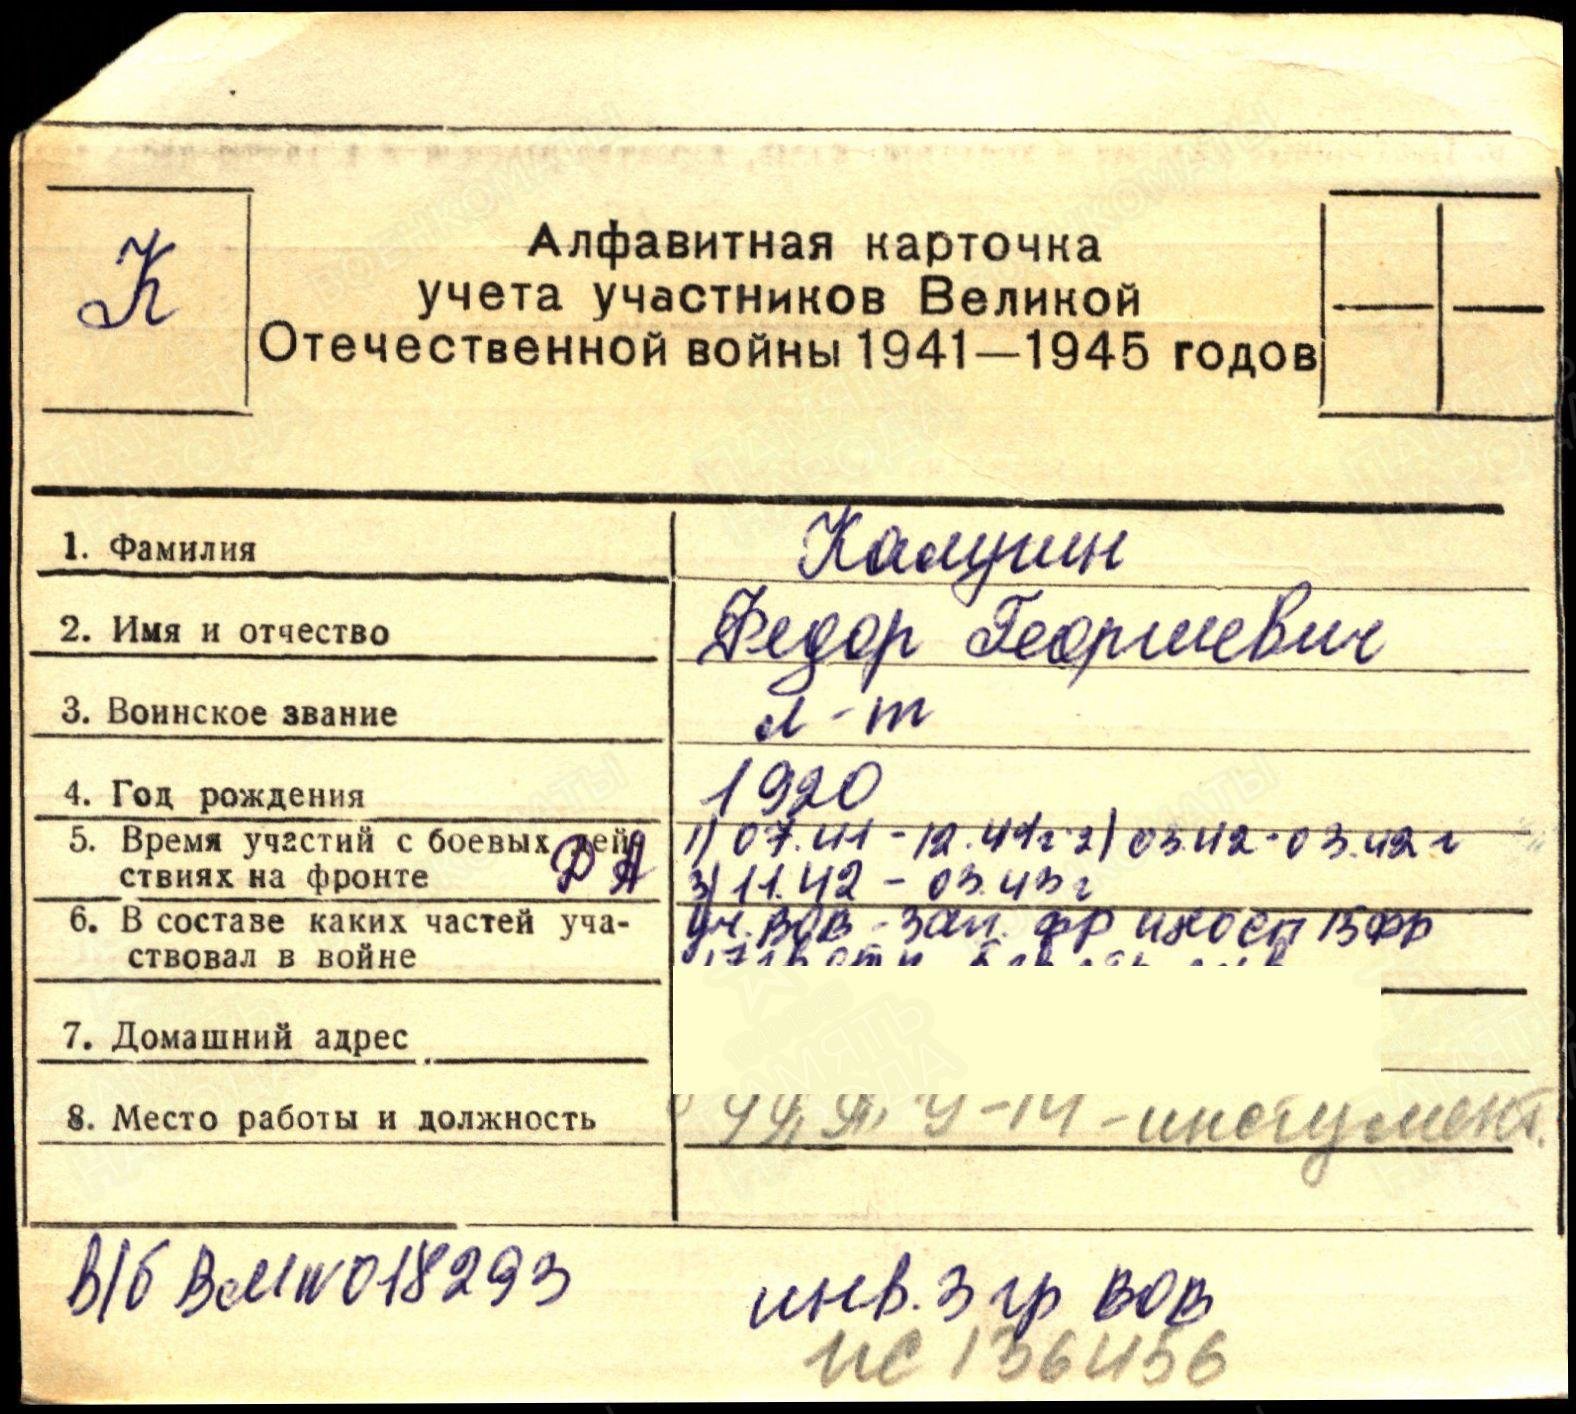 К
Алфавитная карточка
учета участников Великой
Отечественной войны 1941—1945 годов
1. Фамилия Калугин
2. Имя и отчество Федор Георгиевич
3. Воинское звание л-т
4. Год рождения 1920
5. Время участий с боевых дей- 1) 07.41 - 12.41г 2) 03.42 - 03.42 г
ствиях на фронте ДА 3) 11.42 - 03.43 г
6. В составе каких частей уча- уч. ВОВ - Зап. фр
ствовал в войне
7. Домашний адрес
8. Место работы и должность
В/б ВМ № 018293 инв. 3 гр ВОВ
ИС 136456